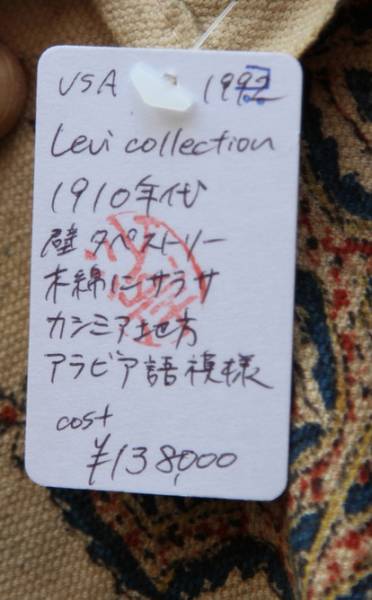 USA
Levi collection
1910年代
壁タペストリー
木綿にサラサ
カシミア地方
アラビア語模様
cost
¥138,000